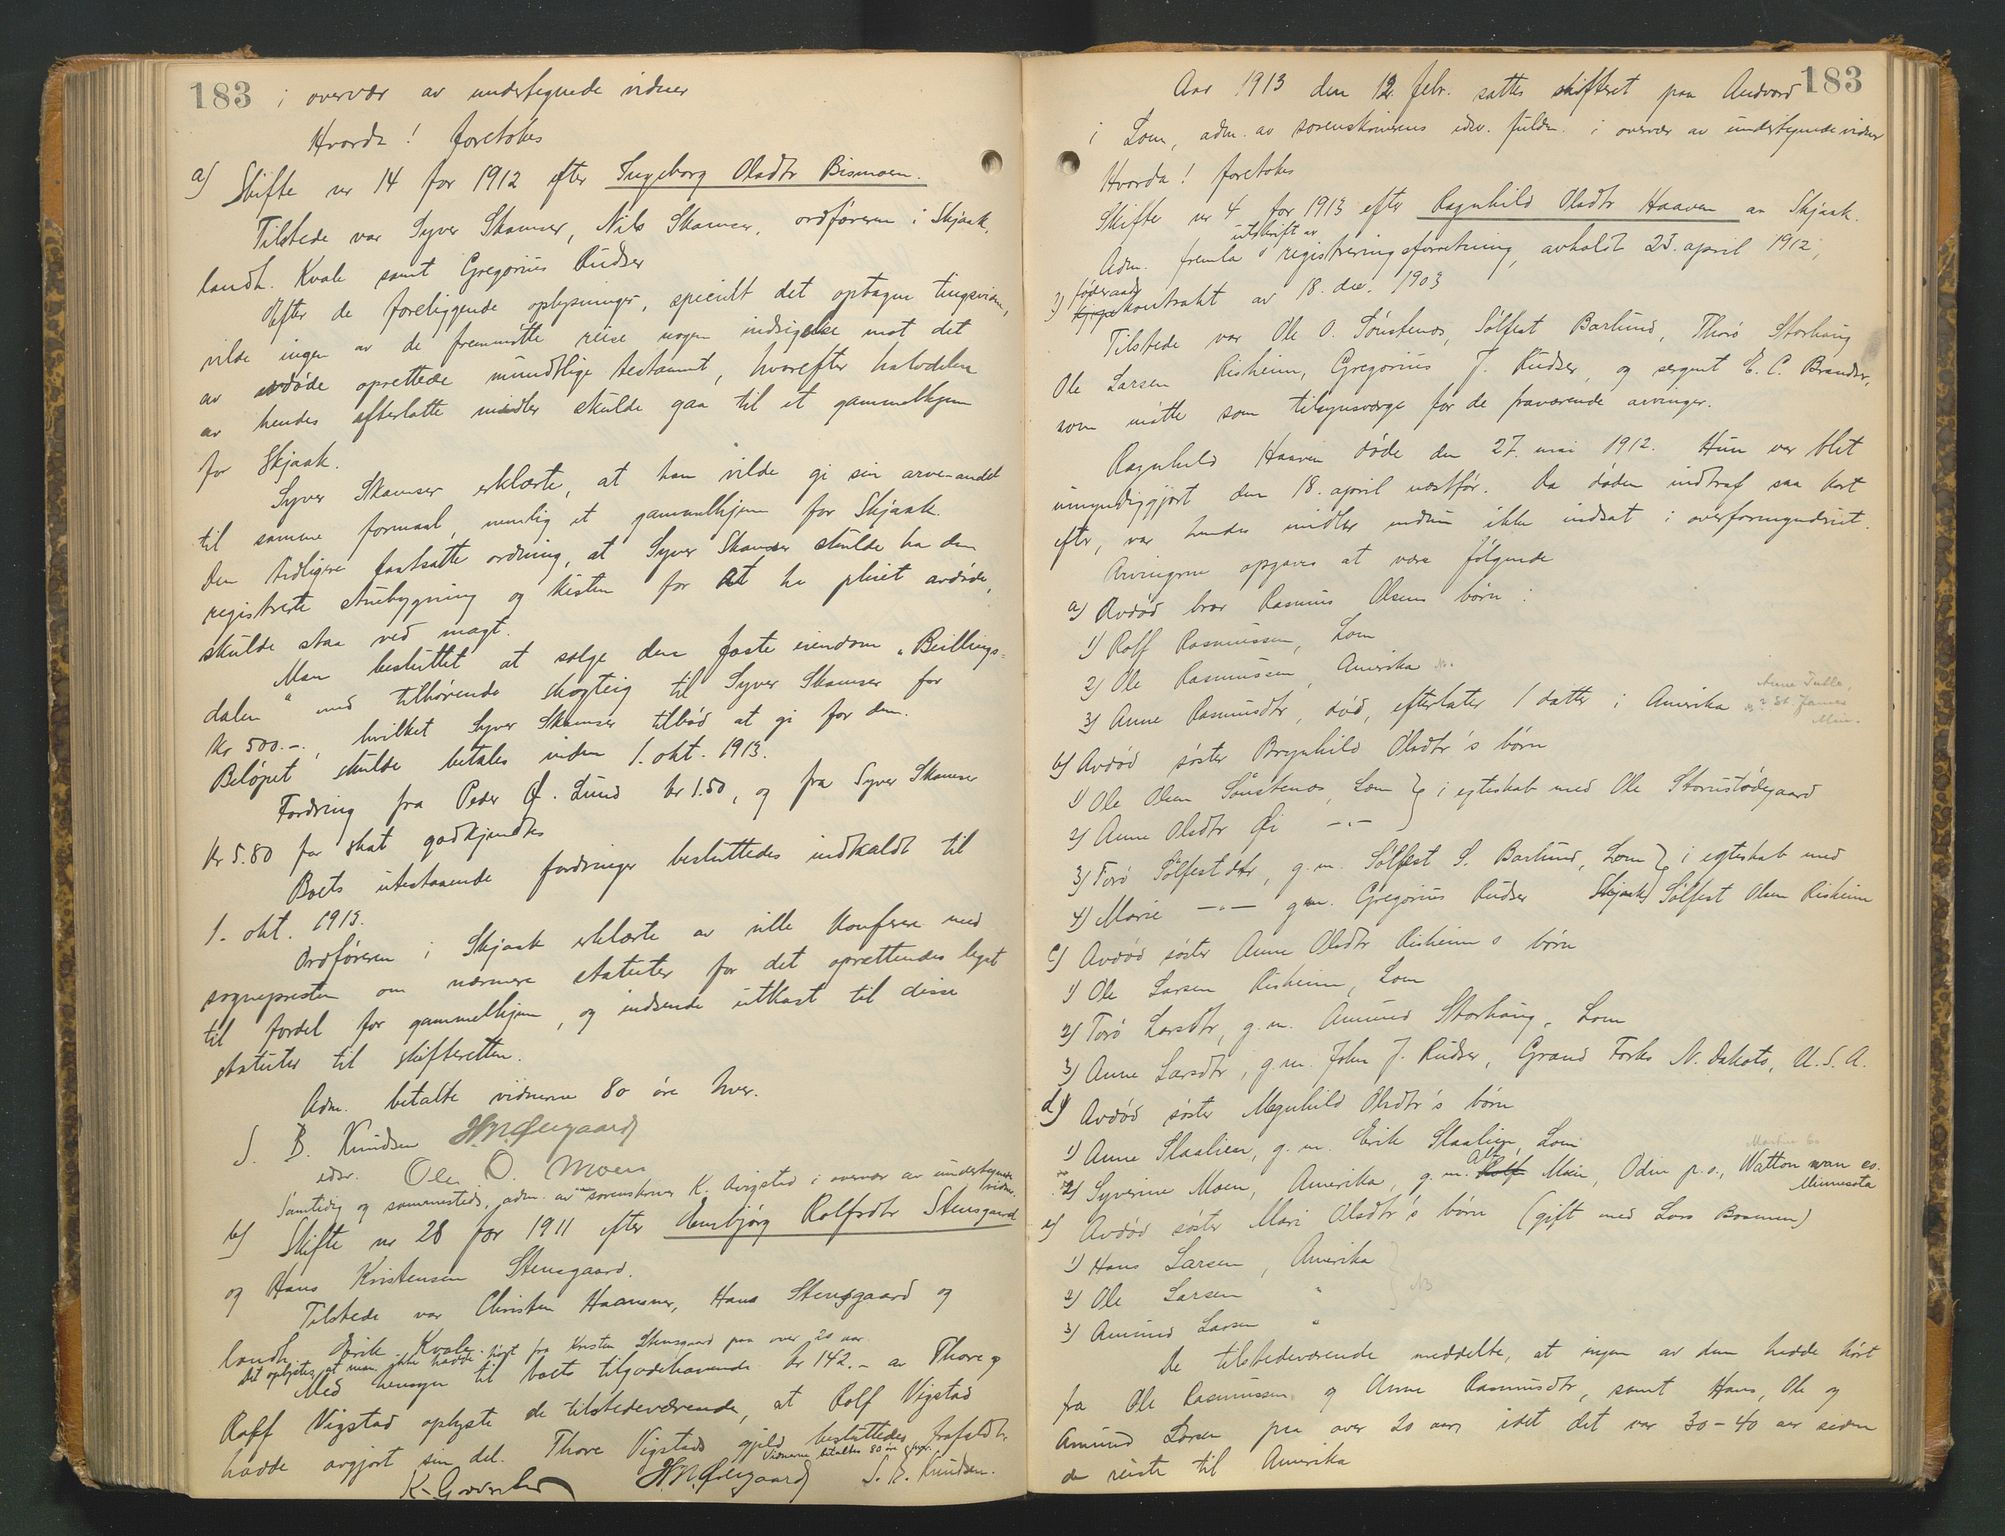 183
i overvær av undertegnede vidner
Hvorda! foretokes
a) Skifte nr 14 for 1912 efter Ingeborg Olsdtr Bismoen.
Tilstede var Syver Skamser, Nils Skamser, ordføreren i Skjaak,
landh. Kvale samt Gregorius Rudser
Efter de foreliggende oplysninger, specielt det optagne tingsvidne,
vilde ingen av de fremmøtte reise nogen indsigelse mot det
av avdøde oprettede mundtlige testament, hvorefter halvdelen
av hendes efterlatte midler skulde gaa til et gammelhjem
for Skjaak.
Syver Skamser erklærte, at han vilde gi sin arve-andel
til samme formaal, nemlig et gammelhjem for Skjaak.
Den tidligere fastsatte ordning, at Syver Skamser skulde ha den
registrerte stuebygning og kisten for at ha pleiet avdøde,
skulde staa ved magt.
Man besluttet at sælge den faste eiendom "Beillings-
dalen" med tilhørende skogteig til Syver Skamser for
kr 500.-, hvilket Syver Skamser tilbød at gi for den.
Beløpet skulde betales inden 1. okt. 1913.
Fordring fra Peder Ø. Lund kr 1.50, og fra Syver Skamser
kr 5.80 for skat godkjendtes
Boets utestaaende fordringer besluttedes indkaldt til
1. okt. 1913.
Ordføreren i Skjaak erklærte at ville konferere med
sognepresten om nærmere statuter for det oprettendes legat
til fordel for gammelhjem, og indsende utkast til disse
statuter til skifteretten.
Adm. betalte vidnerne 80 øre hver.
S. B. Knudsen H.N. Øiegaard
edsv. Ole O. Moen
Samtidig og sammesteds, adm. av sorenskriver K. Avigstad i overvær av undertegnede vidner.
b) Skifte nr 28 for 1911 efter Rolfsdtr Stensgaard
og Hans Kristensen Stensgaard.
Tilstede var Christen Haansner, Hans Stensgaard og
landh. Erik Kvale.
Det oplystes, at man ikke hadde hørt fra Kristen Stensgaard paa over 20 aar.
Med hensyn til boets tilgodehavende kr 142.- av Thore og
Rolf Vigstad oplyste de tilstedeværende, at Rolf Vigstad
hadde avgjort sin del. Thore Vigstads gjeld besluttedes frafaldt.
Vidnerne betaltes 80 øre hver.
H.N. Øiegaard S. B. Knudsen.
183
Aar 1913 den 12. febr. sattes skifteret paa Andvord
i Lom, adm. av sorenskriverens edsv. fuldm. i overvær av undertegnede vidner
Hvorda! foretokes
Skifte nr 4 for 1913 efter Ragnhild Olsdtr Haaven av Skjaak.
Adm. fremla utskrift av registreringsforretning, avholdt 23. april 1912,
føderaadskontrakt av 18. des. 1903
Tilstede var Ole O. Sønstenes, Sølfest Barlund, Thorø Storhaug
Ole Larsen Risheim, Gregorius J. Rudser, og sergent E. C. Brandser,
som møtte som tilsynsværge for de fraværende arvinger.
Ragnhild Haaven døde den 27. mai 1912. Hun var blit
umyndiggjort den 18. april næstfør. Da døden indtraf saa kort
efter, var hendes midler endnu ikke indsat i overformynderiet.
Arvingerne opgaves at være følgende
a) Avdød bror Rasmus Olsens børn:
1) Rolf Rasmussen, Lom
2) Ole Rasmussen, Amerika
3) Anne Rasmusdtr, død, efterlater 1 datter i Amerika
b) Avdød søster Brynhild Olsdtr's børn
1) Ole Olsen Sønstenes, Lom } i egteskab med Ole Storustødegaard
2) Anne Olsdtr Øi -"-
3) Torø Sølfestdtr, g.m. Sølfest S. Barlund, Lom } i egteskab med
4) Marie -"- g.m. Gregorius Rudser Skjaak } Sølfest Olsen Risheim
c) Avdød søster Anne Olsdtr Risheims børn
1) Ole Larsen Risheim, Lom
2) Torø Larsdtr, g.m. Amund Storhaug, Lom
3) Anne Larsdtr, g.m. John J. Rudser, Grand Forks N. Dakota, U.S.A.
d) Avdød søster Magnhild Olsdtr's børn
1) Anne Slaalien, g.m. Erik Slaalien, Lom
2) Syverine Moen, Amerika, g.m. Rolf Moen, Odin p.o., Watton wan co.
Minnesota
e) Avdød søster Mari Olsdtr's børn (gift med Lars Bosmoen)
1) Hans Larsen, Amerika
2) Ole Larsen "
3) Amund Larsen "
De tilstedeværende meddelte, at ingen av dem hadde hørt
fra Ole Rasmussen og Anne Rasmusdtr, samt Hans, Ole og
Amund Larsen paa over 20 aar, idet det var 30-40 aar siden
de reiste til Amerika